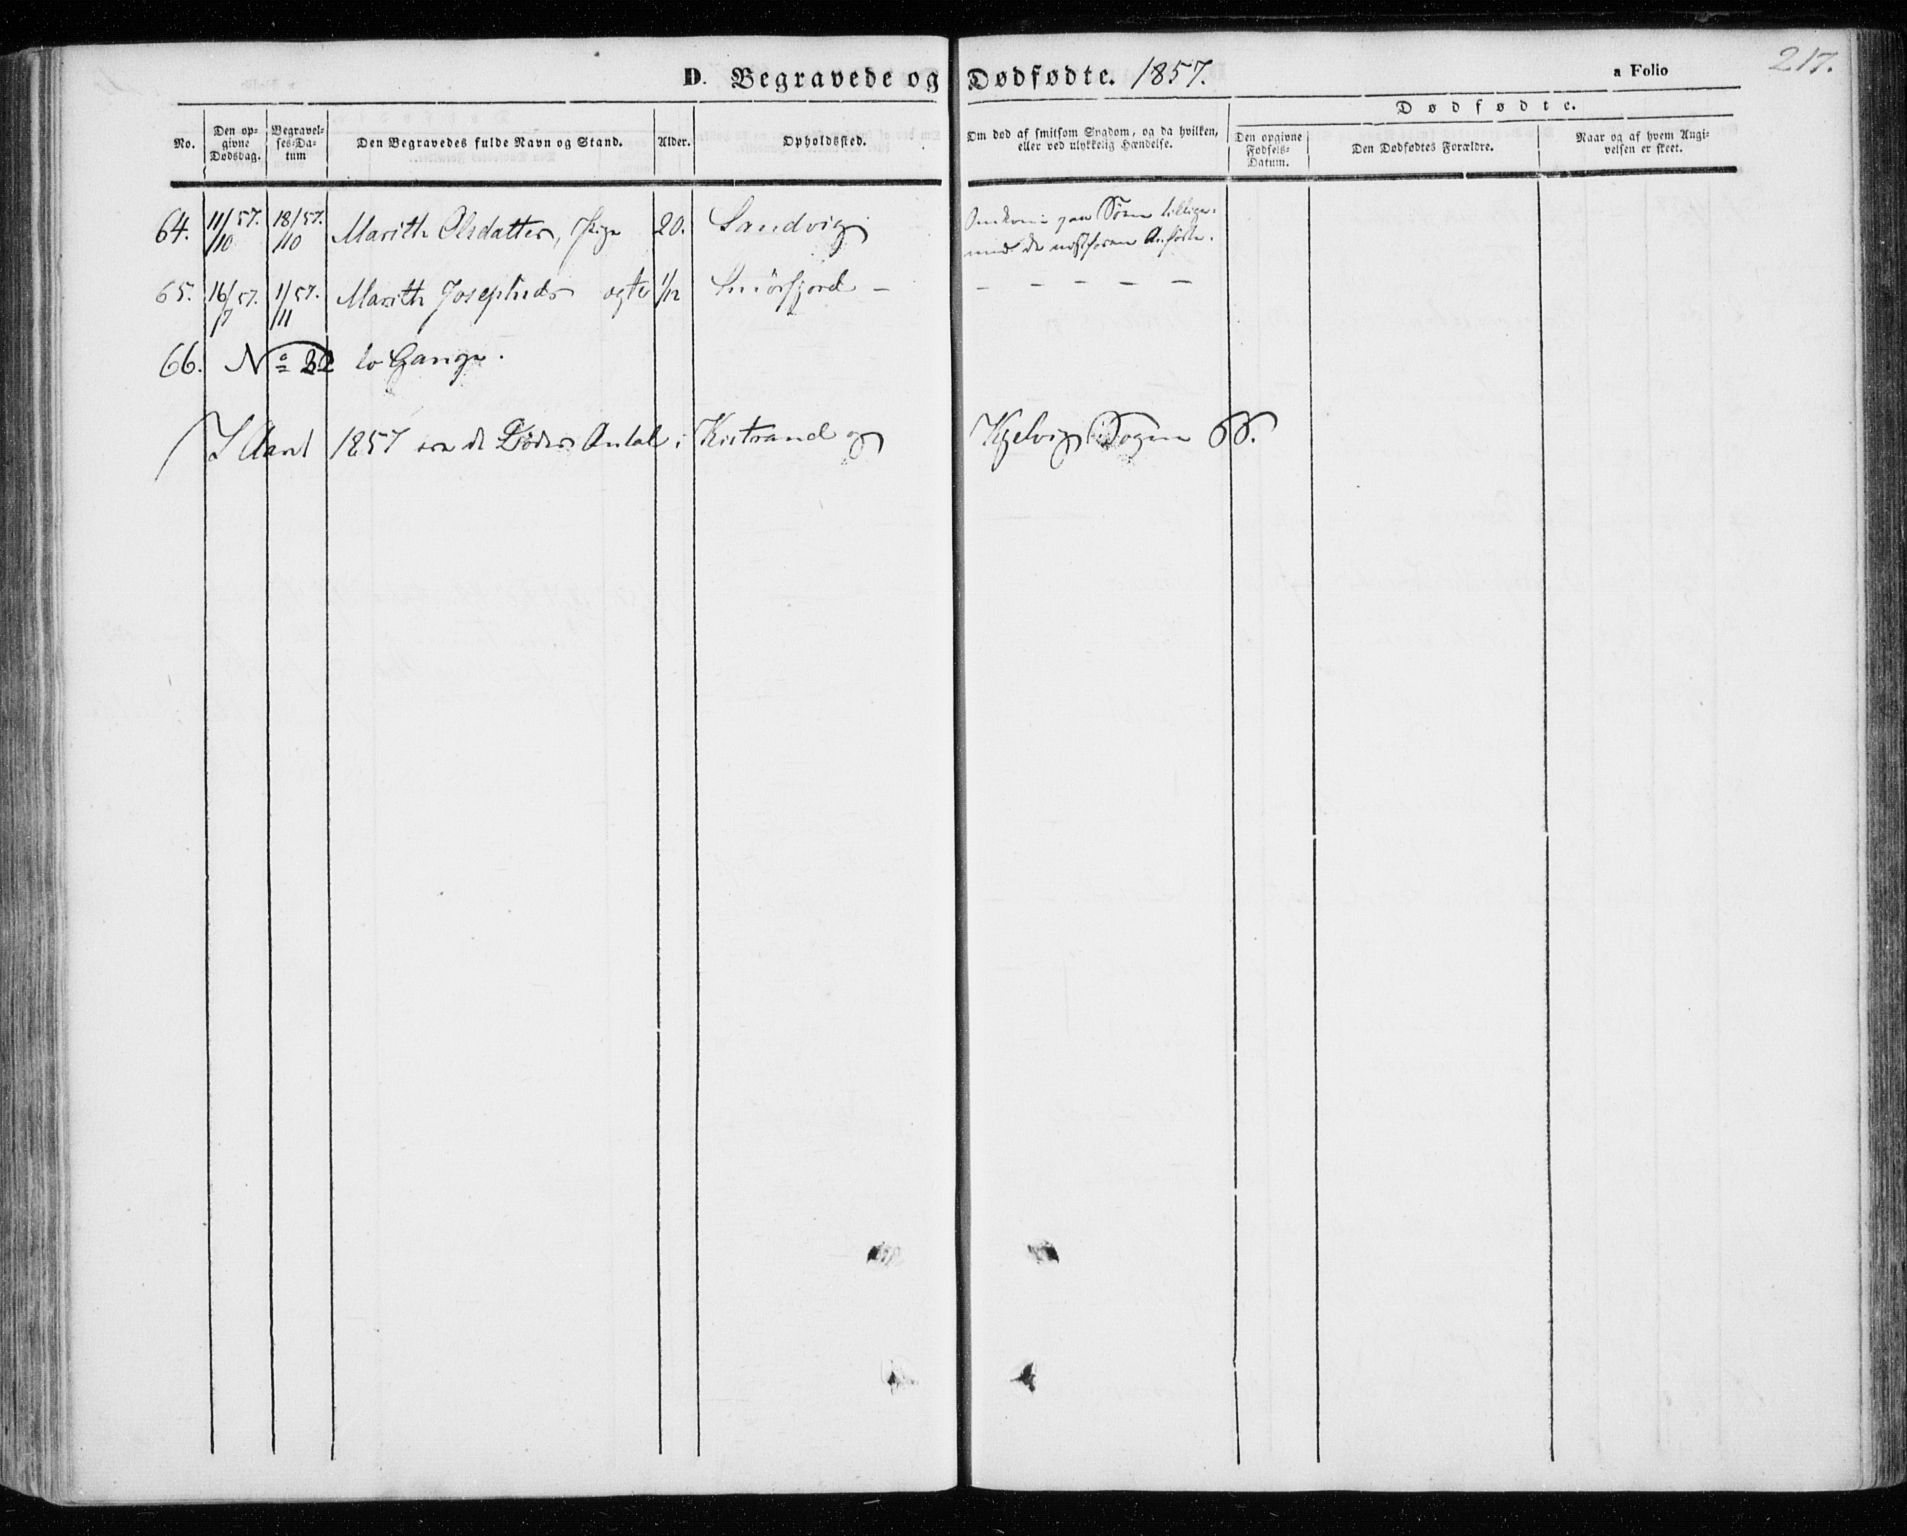 217.
D. Begravede og Dødfødte. 1857. a Folio
Dødfødte.
No.
Den op-
givne
Dødsdag.
Begravel-
ses-Da-
tum
Den Begravedes fulde Navn og Stand.
Alder.
Opholdssted.
Om død af smitsom Sygdom, og da hvilken,
eller ved ulykkelig Hændelse.
Den opgivne
Fødsels-
Datum.
Den Dødfødtes Forældre.
Naar og af hvem Angi-
velsen er skeet.
64. 11/10 57. 18/10 57. Marith Olsdatter, Pige 20. Sandvig Omkom paa Søen tillige-
med de næstforan Anførte.
65. 16/7 57. 1/11 57. Marith Josephsdr ægte 1/12 Smörfjord – – – – – –
66. No 32 to Gange.
I Aaret 1857 er de Dødes Antal i Kistrand og Kjelvig Sogne 66.